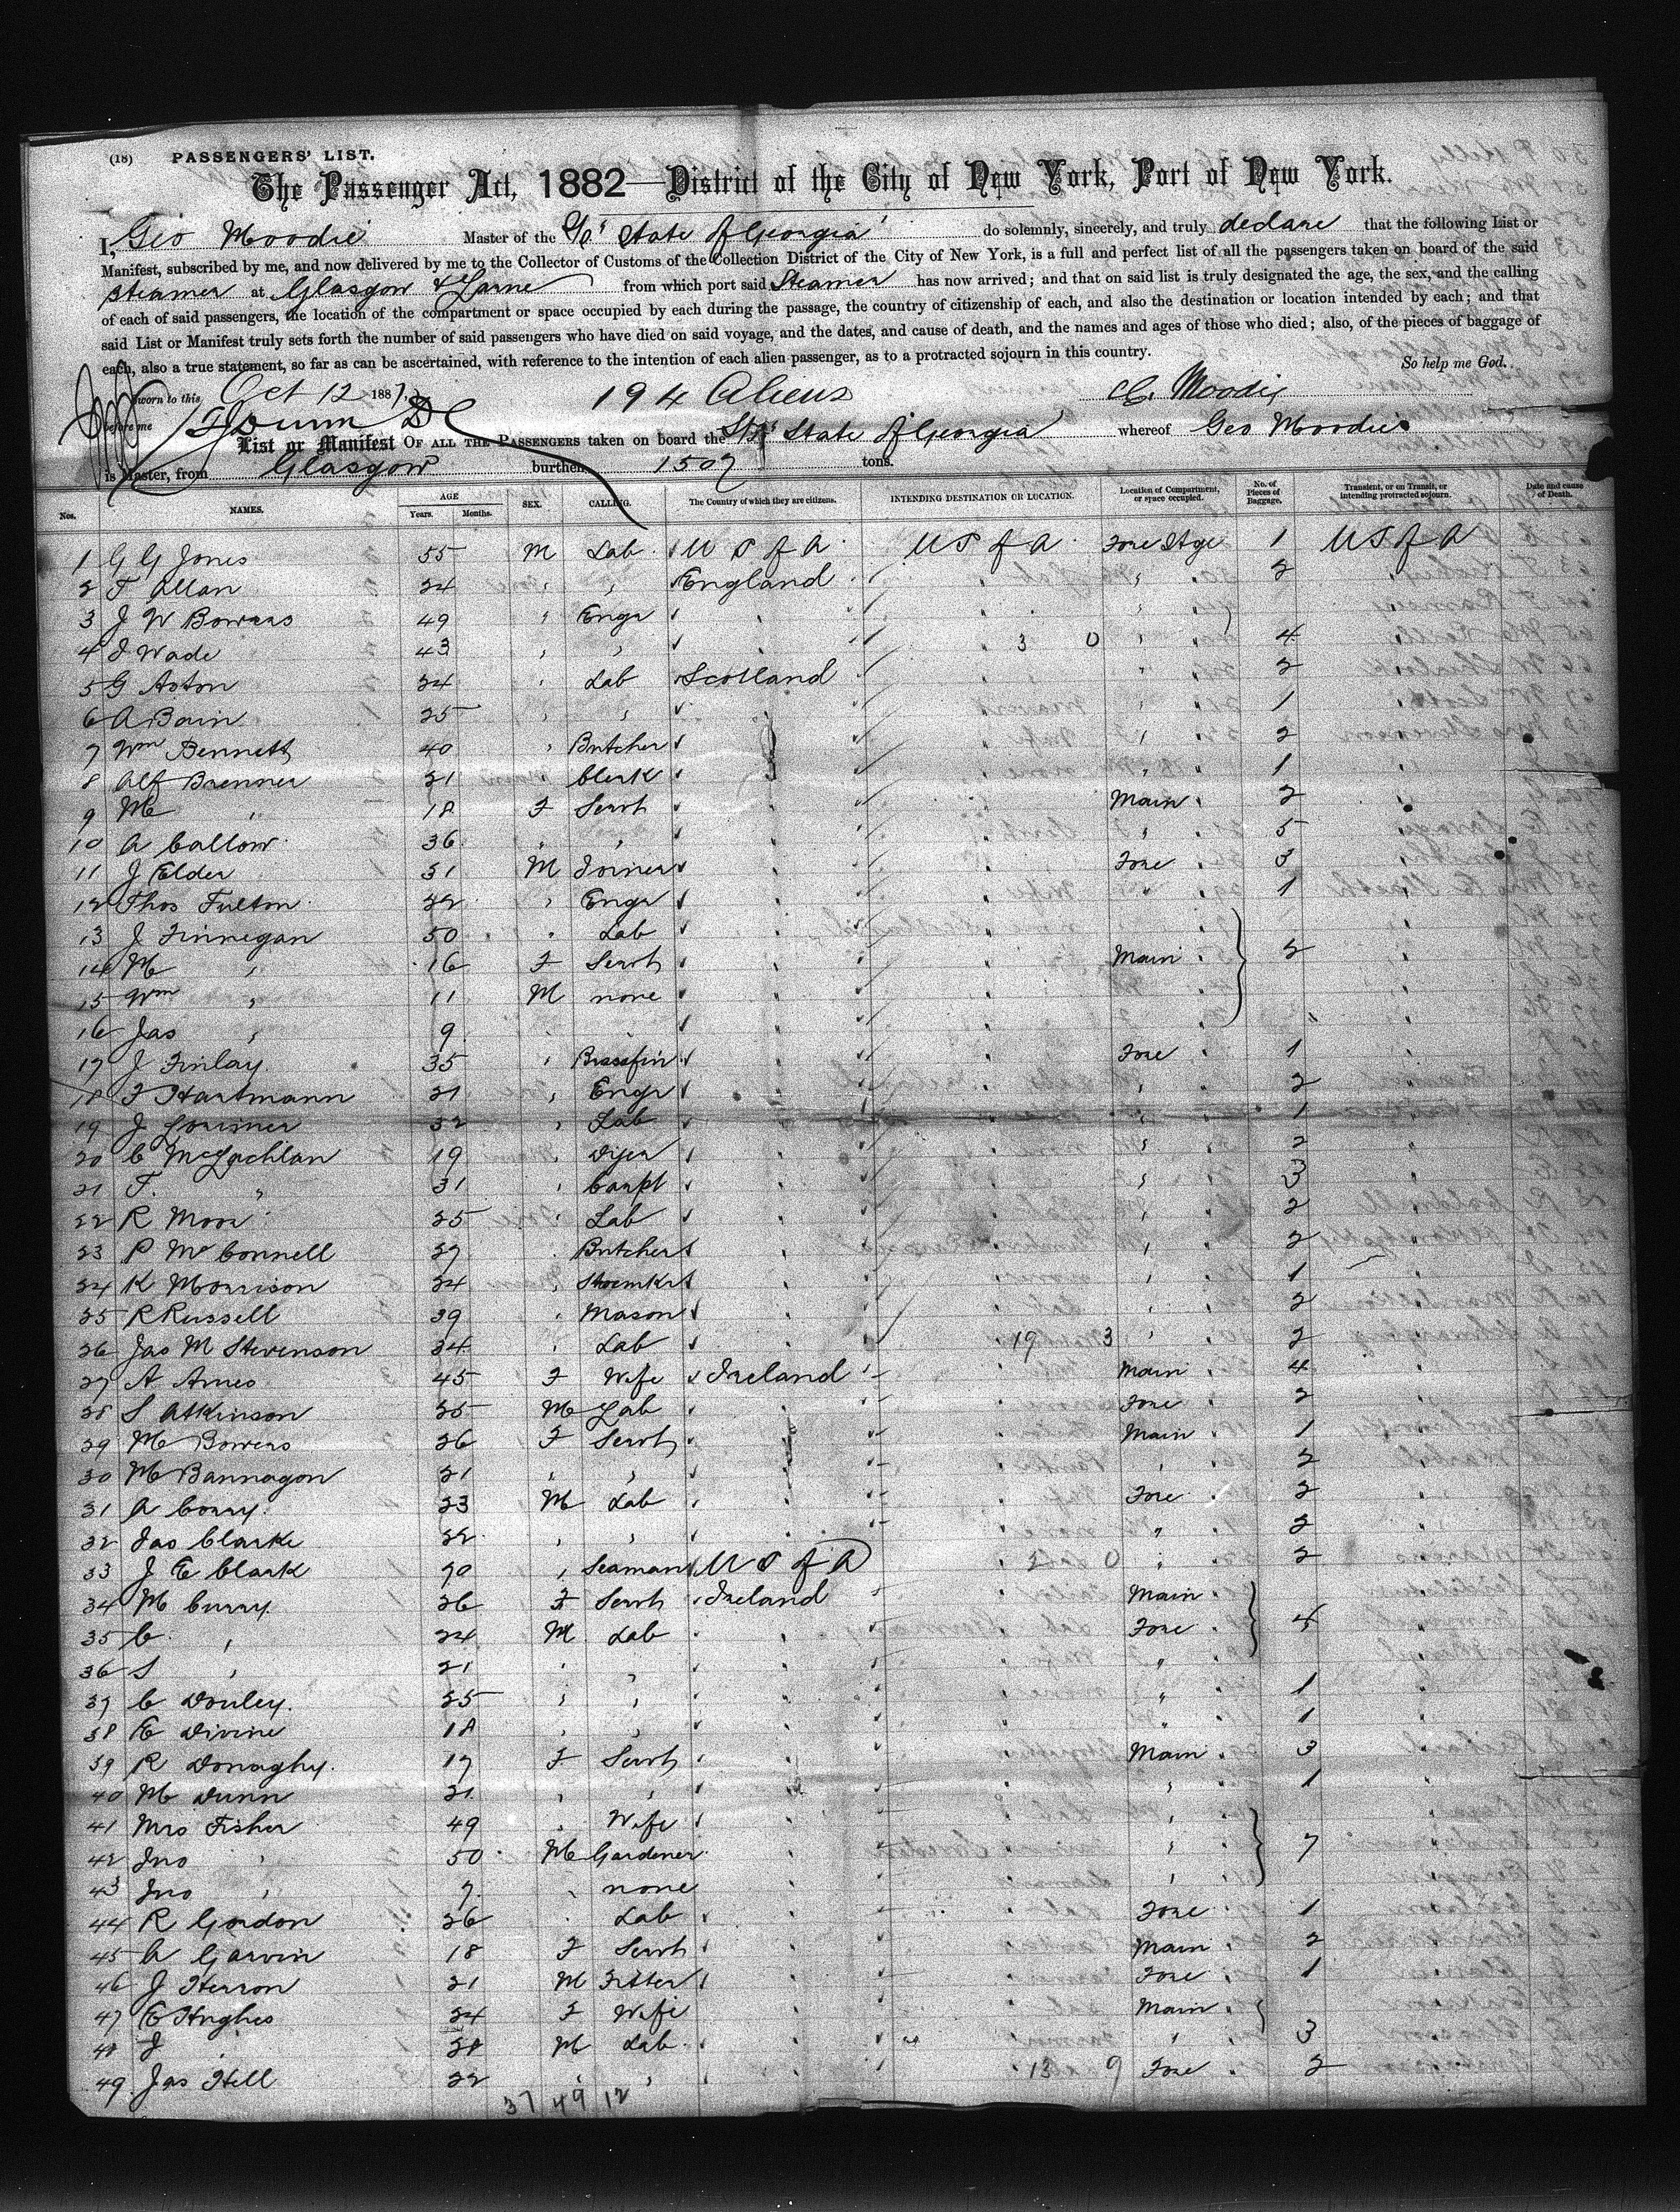 (18) PASSENGERS' LIST.
The Passenger Act, 1882—District of the City of New York, Port of New York.
I, Geo Moodie Master of the S/S "State of Georgia" do solemnly, sincerely, and truly declare that the following List or
Manifest, subscribed by me, and now delivered by me to the Collector of Customs of the Collection District of the City of New York, is a full and perfect list of all the passengers taken on board of the said
Steamer at Glasgow & Larne from which port said Steamer has now arrived; and that on said list is truly designated the age, the sex, and the calling
of each of said passengers, the location of the compartment or space occupied by each during the passage, the country of citizenship of each, and also the destination or location intended by each; and that
said List or Manifest truly sets forth the number of said passengers who have died on said voyage, and the dates, and cause of death, and the names and ages of those who died; also, of the pieces of baggage of
each, also a true statement, so far as can be ascertained, with reference to the intention of each alien passenger, as to a protracted sojourn in this country. So help me God.
Sworn to this Oct 12 1887, 194 Aliens G. Moodie
before me
List or Manifest OF ALL THE PASSENGERS taken on board the S/S State of Georgia whereof Geo Moodie
is Master, from Glasgow burthen 1507 tons.
Nos. NAMES. AGE Years. Months. SEX. CALLING. The Country of which they are citizens. INTENDING DESTINATION OR LOCATION. Location of Compartment, or space occupied. No. of Pieces of Baggage. Transient, or on Transit, or intending protracted sojourn. Date and cause of Death.
1 G G Jones 55 M Lab U S of A U S of A Fore Stge 1 U S of A
2 T Allan 24 " " England " " 2 "
3 J W Bowers 49 " Engr " " "
4 J Wade 43 " " " 3 0 " 4 "
5 G Aston 24 " Lab Scotland " " 2 "
6 A Bain 25 " " " " " 1 "
7 Wm Bennett 40 " Butcher " " " 2 "
8 Alf Brenner 21 Clerk " " " 1 "
9 M " 18 F Servt " " Main " 2 "
10 A Callow 36 " " " " " 5 "
11 J Elder 31 M Joiner " " Fore " 3 "
12 Thos Fulton 22 " Engr " " " 1 "
13 J Finnegan 50 " Lab " "
14 M " 16 F Servt " " Main " 2 "
15 Wm " 11 M none " "
16 Jas " 9 " " " " "
17 J Finlay 35 " Brassfin " " Fore " 1 "
18 F Hartmann 21 " Engr " " " 2 "
19 J Lorimer 32 " Lab " " " 1 "
20 C McLachlan 19 " Dyer " " " 2 "
21 T. " 31 " Carpt " " " 3 "
22 R Moor 25 " Lab " " " 2 "
23 P McConnell 27 " Butcher " " " 2 "
24 K Morrison 24 " " " " 1 "
25 R Russell 39 " Mason " " " 2 "
26 Jas M Stevenson 34 " Lab " 19 3 " 2 "
27 A Ames 45 F Wife Ireland " Main " 4 "
28 S Atkinson 25 M Lab " " Fore " 2 "
29 M Bowers 26 F Servt " " Main " 1 "
30 M Bannagon 21 " " " " " 2 "
31 A Corry 23 M Lab " " Fore " 2 "
32 Jas Clarke 22 " " " " " 2 "
33 J E Clark 70 " Seaman U S of A 0 " 2 "
34 M Curry 26 F Servt Ireland " Main "
35 C " 24 M Lab " " Fore " 4 "
36 S " 21 " " " " "
37 C Donley 25 " " " " " 1 "
38 E Divine 18 " " " " " 1 "
39 R Donaghy 17 F Servt " " Main " 3 "
40 M Dunn 21 " " " " " 1 "
41 Mrs Fisher 49 " Wife " " "
42 Jno " 50 M Gardener " " " 7 "
43 Jno " 7 " none " " "
44 R Gordon 26 " Lab " " Fore " 1 "
45 A Garvin 18 F Servt " " Main " 2 "
46 J Herron 21 M Fitter " " Fore " 1 "
47 E Hughes 24 F Wife " " Main "
48 J " 28 M Lab " " " 3 "
49 Jas Hill 22 " " " 13 9 Fore " 2 "
37 49 12